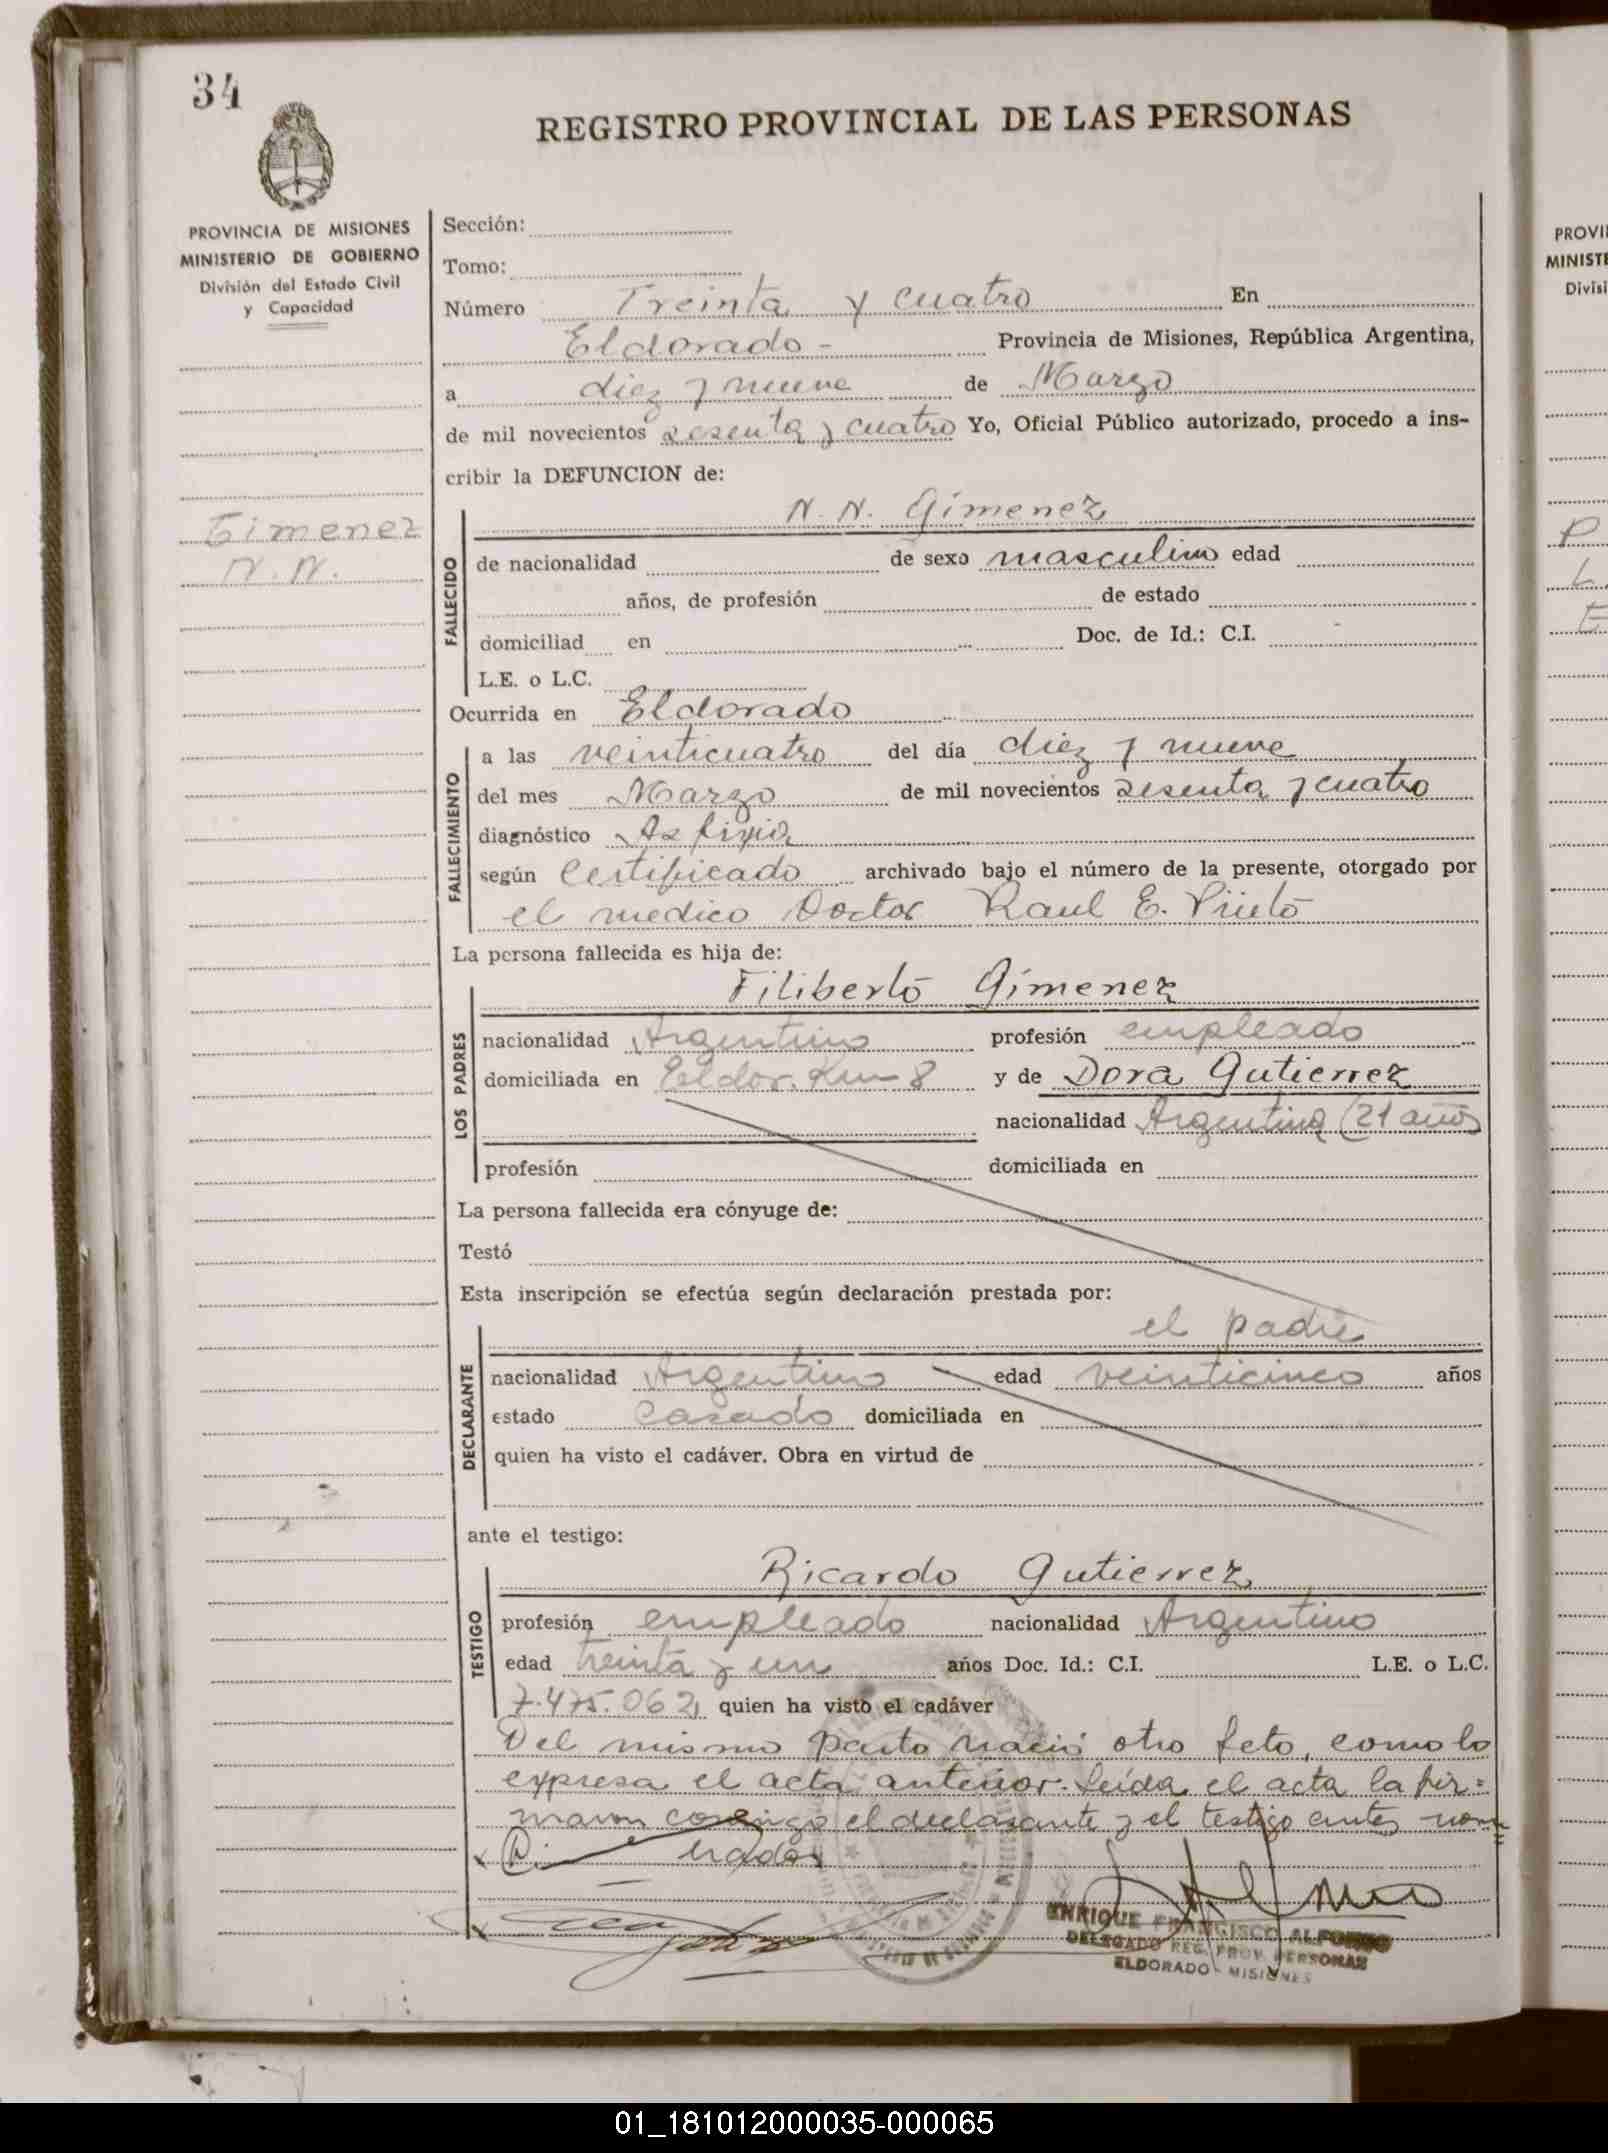 34
REGISTRO PROVINCIAL DE LAS PERSONAS
PROVINCIA DE MISIONES
MINISTERIO DE GOBIERNO
División del Estado Civil
y Capacidad
Gimenez
N.N.
Sección:
Tomo:
Número Treinta y cuatro En
Eldorado - Provincia de Misiones, República Argentina,
a diez y nueve de Marzo
de mil novecientos sesenta y cuatro Yo, Oficial Público autorizado, procedo a ins-
cribir la DEFUNCION de:
N. N. Gimenez
FALLECIDO
de nacionalidad de sexo masculino edad
años, de profesión de estado
domiciliad en Doc. de Id.: C.I.
L.E. o L.C.
Ocurrida en Eldorado
FALLECIMIENTO
a las veinticuatro del día diez y nueve
del mes Marzo de mil novecientos sesenta y cuatro
diagnóstico Asfixia
según Certificado archivado bajo el número de la presente, otorgado por
el medico Doctor Raul E.
La persona fallecida es hija de:
LOS PADRES
Filiberto Gimenez
nacionalidad Argentino profesión empleado
domiciliada en Eldor. Km 8 y de Dora Gutierrez
nacionalidad Argentina (21 años
profesión domiciliada en
La persona fallecida era cónyuge de:
Testó
Esta inscripción se efectúa según declaración prestada por:
DECLARANTE
el padre
nacionalidad Argentino edad veinticinco años
estado Casado domiciliada en
quien ha visto el cadáver. Obra en virtud de
ante el testigo:
TESTIGO
Ricardo Gutierrez
profesión empleado nacionalidad Argentino
edad treinta y un años Doc. Id.: C.I. L.E. o L.C.
7.475.062 quien ha visto el cadáver
Del mismo parto nació otro feto, como lo
expresa el acta anterior. Leída el acta la fir=
maron conmigo el declarante y el testigo antes nom=
brados
ENRIQUE FRANCISCO ALFONSO
DELEGADO REG. PROV. PERSONAS
ELDORADO - MISIONES
PROVI
MINISTE
Divisi
01_181012000035-000065